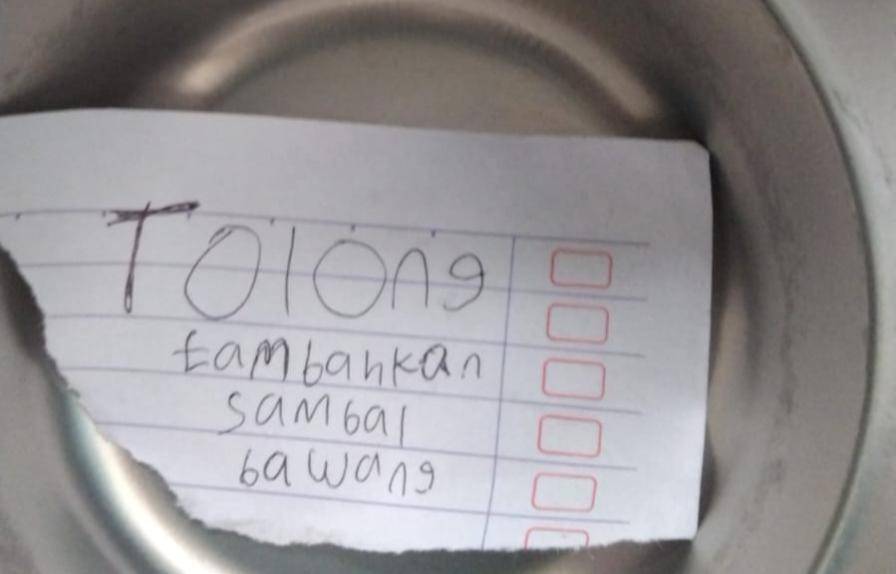 Tolong
tambahkan
sambal
bawang